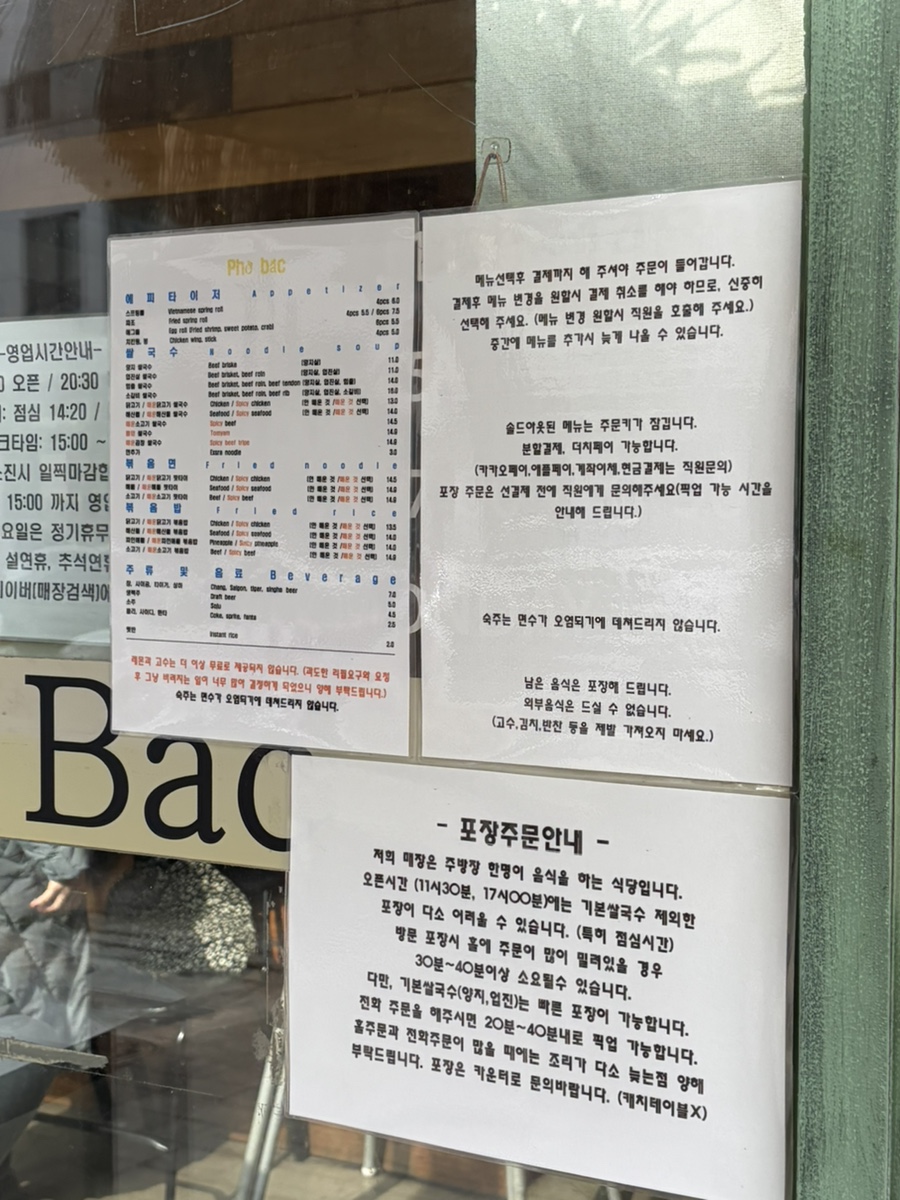 -영업시간안내-
오픈 / 20:30
점심 14:20 /
크타임: 15:00 ~
소진시 일찍마감합
15:00 까지 영업
요일은 정기휴무
설연휴, 추석연휴
이버(매장검색)에
Pho bac
에피타이저 Appetizer
스프링롤 Vietnamese spring roll 4pcs 6.0
짜조 Fried spring roll 4pcs 5.5 / 8pcs 7.5
에그롤 Egg roll (fried shrimp, sweet potato, crab) 8pcs 5.0
치킨윙, 봉 Chicken wing, stick 4pcs 5.0
쌀국수 Noodle soup
양지 쌀국수 Beef briske (양지살) 11.0
업진살 쌀국수 Beef brisket, beef rain (양지살, 업진살) 11.0
힘줄 쌀국수 Beef brisket, beef rain, beef tendon (양지살, 업진살, 힘줄) 14.0
소갈비 쌀국수 Beef brisket, beef rain, beef rib (양지살, 업진살, 소갈비) 16.0
닭고기 / 매운닭고기 쌀국수 Chicken / Spicy chicken (안 매운 것 /매운 것 선택) 13.0
해산물 / 매운해산물 쌀국수 Seafood / Spicy seafood (안 매운 것 /매운 것 선택) 14.0
매운소고기 쌀국수 Spicy beef 14.5
쌀국수 14.0
매운곱창 쌀국수 Spicy beef tripe 14.0
면추가 Exara noodle 3.0
볶음면 Fried noodle
닭고기 / 매운닭고기 팟타이 Chicken / Spicy chicken (안 매운 것 /매운 것 선택) 14.5
해물 / 매운해물 팟타이 Seafood / Spicy seafood (안 매운 것 /매운 것 선택) 14.8
소고기 / 매운소고기 팟타이 Beef / Spicy beef (안 매운 것 /매운 것 선택) 14.8
볶음밥 Fried rice
닭고기 / 매운닭고기 볶음밥 Chicken / Spicy chicken (안 매운 것 /매운 것 선택) 13.5
해산물 / 매운해산물 볶음밥 Seafood / Spicy seafood (안 매운 것 /매운 것 선택) 14.0
파인애플 / 매운파인애플 볶음밥 Pineapple / Spicy pineapple (안 매운 것 /매운 것 선택) 14.0
소고기 / 매운소고기 볶음밥 Beef / Spicy beef (안 매운 것 /매운 것 선택) 14.0
주류 및 음료 Beverage
창, 사이공, 타이거, 싱하 Chang, Saigon, tiger, singha beer 7.0
생맥주 Draft beer 5.0
소주 Soju 4.5
콜라, 사이다, 환타 Coke, sprite, fanta 2.5
햇반 Instant rice 2.0
레몬과 고수는 더 이상 무료로 제공되지 않습니다. (과도한 리필요구와 요청
후 그냥 버려지는 일이 너무 많아 결정하게 되었으니 양해 부탁드립니다.)
숙주는 면수가 오염되기에 데쳐드리지 않습니다.
메뉴선택후 결제까지 해 주셔야 주문이 들어갑니다.
결제후 메뉴 변경을 원할시 결제 취소를 해야 하므로, 신중히
선택해 주세요. (메뉴 변경 원할시 직원을 호출해 주세요.)
중간에 메뉴를 추가시 늦게 나올 수 있습니다.
솔드아웃된 메뉴는 주문키가 잠깁니다.
분할결제, 더치페이 가능합니다.
(카카오페이,애플페이,계좌이체,현금결제는 직원문의)
포장 주문은 선결제 전에 직원에게 문의해주세요(픽업 가능 시간을
안내해 드립니다.)
숙주는 면수가 오염되기에 데쳐드리지 않습니다.
남은 음식은 포장해 드립니다.
외부음식은 드실 수 없습니다.
(고수,김치,반찬 등을 제발 가져오지 마세요.)
Bac
- 포장주문안내 -
저희 매장은 주방장 한명이 음식을 하는 식당입니다.
오픈시간 (11시30분, 17시00분)에는 기본쌀국수 제외한
포장이 다소 어려울 수 있습니다. (특히 점심시간)
방문 포장시 홀에 주문이 많이 밀려있을 경우
30분~40분이상 소요될수 있습니다.
다만, 기본쌀국수(양지,업진)는 빠른 포장이 가능합니다.
전화 주문을 해주시면 20분~40분내로 픽업 가능합니다.
홀주문과 전화주문이 많을 때에는 조리가 다소 늦는점 양해
부탁드립니다. 포장은 카운터로 문의바랍니다. (캐치테이블X)